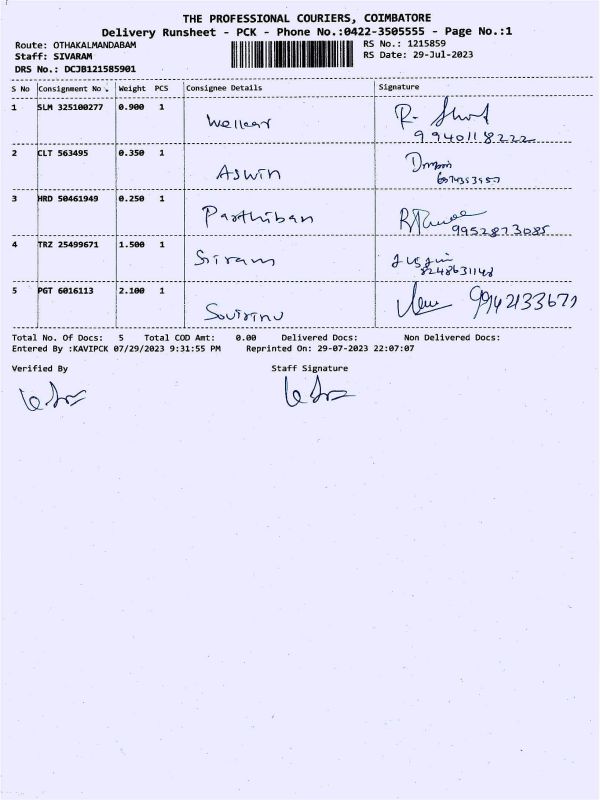 THE PROFESSIONAL COURIERS, COIMBATORE
Delivery Runsheet - PCK - Phone No.:0422-3505555 - Page No.:1
Route: OTHAKALMANDABAM RS No.: 1215859
Staff: SIVARAM RS Date: 29-Jul-2023
DRS No.: DCJB121585901
S No Consignment No . Weight PCS Consignee Details Signature
1 SLM 325100277 0.900 1
9940118222
2 CLT 563495 0.350 1
Aswin
3 HRD 50461949 0.250 1
Parthiban 9952873085
4 TRZ 25499671 1.500 1
Sriram 8248631148
5 PGT 6016113 2.100 1
Total No. Of Docs: 5 Total COD Amt: 0.00 Delivered Docs: Non Delivered Docs:
Entered By :KAVIPCK 07/29/2023 9:31:55 PM Reprinted On: 29-07-2023 22:07:07
Verified By Staff Signature